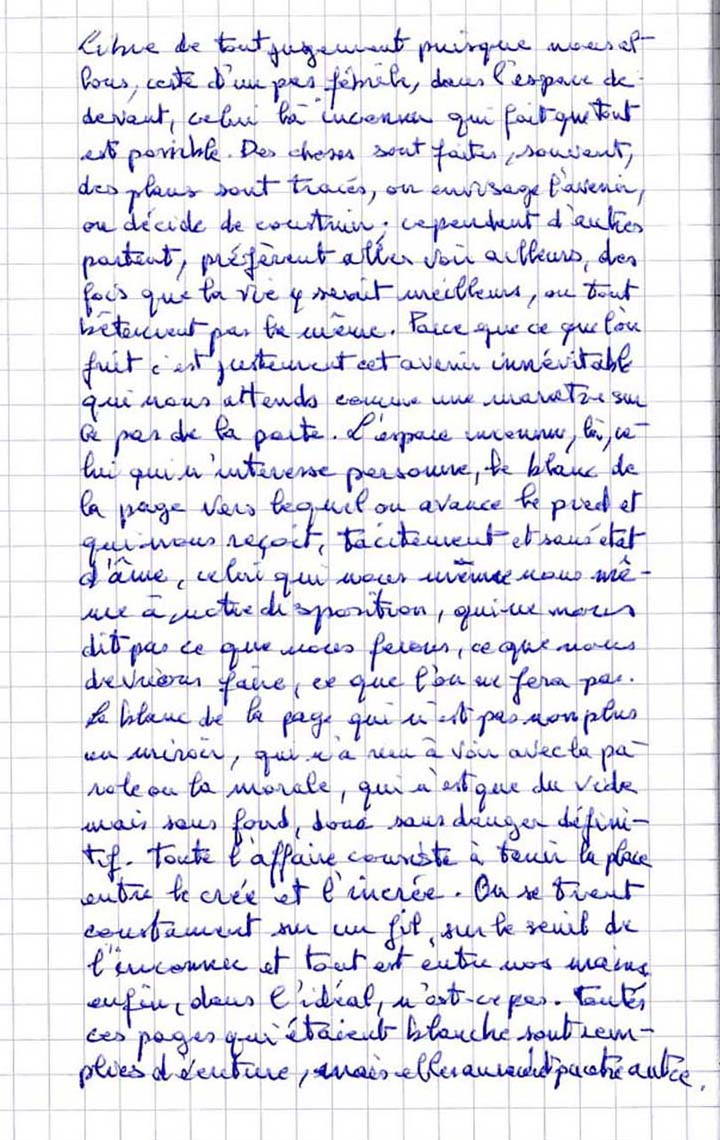 Libre de tout jugement puisque nous al-
lons, certe d'un pas fébrile, dans l'espace de
devant, celui là inconnu qui fait que tout
est possible. Des choses sont faites, souvent,
des plans sont tracés, on envisage l'avenir,
on décide de construire ; cependant d'autres
partent, préfèrent aller voir ailleurs, des
fois que la vie y serait meilleure, ou tout
bêtement pas la même. Parce que ce que l'on
fuit c'est justement cet avenir innévitable
qui nous attends comme une maratre sur
le pas de la porte. L'espace inconnu, là, ce-
lui qui n'interesse personne, le blanc de
la page vers lequel on avance le pied et
qui nous reçoit, tacitement et sans état
d'âme, celui qui nous même nous mê-
me à notre disposition, qui ne nous
dit pas ce que nous ferons, ce que nous
devrions faire, ce que l'on ne fera pas.
Le blanc de la page qui n'est pas non plus
un miroir, qui n'a rien à voir avec la pa-
role ou la morale, qui n'est que du vide
mais sans fond, donc sans danger défini-
tif. Toute l'affaire consiste à tenir la place
entre le crée et l'incrée. On se tient
constament sur un fil, sur le seuil de
l'inconnu et tout est entre nos mains
enfin, dans l'idéal, n'est-ce pas. Toutes
ces pages qui étaient blanche sont rem-
plies d'écriture, mais elles auraient pu être autre.